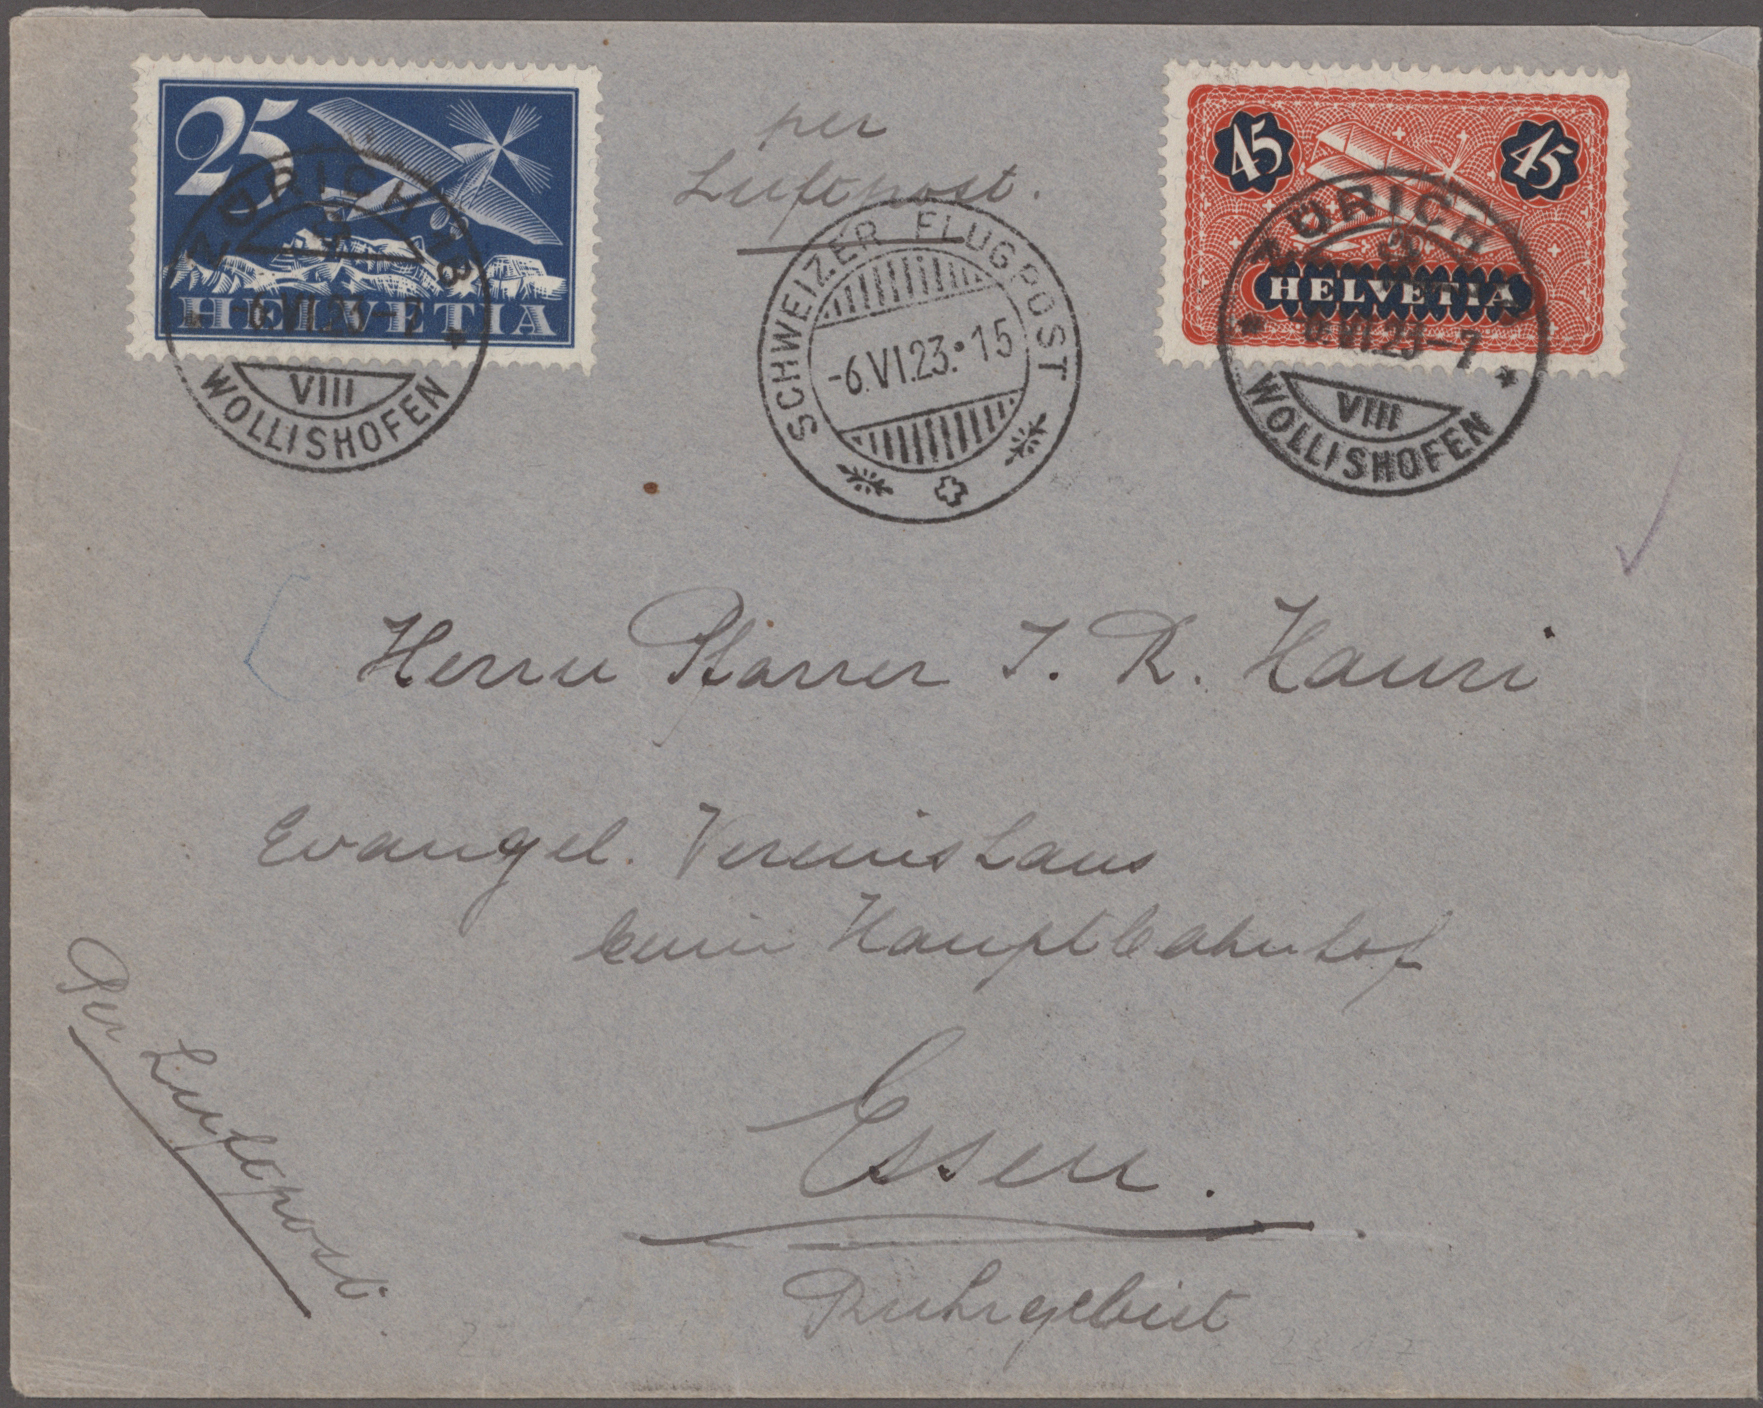 25
HELVETIA
ZÜRICH
-6.VI.23-7
VIII
WOLLISHOFEN
per
Luftpost.
SCHWEIZER FLUGPOST
-6.VI.23.•15
45 45
HELVETIA
ZÜRICH
-6.VI.23-7
VIII
WOLLISHOFEN
Herrn Pfarrer J. R. Hauri
Evangel. Vereinshaus
beim Hauptbahnhof
Essen.
Ruhrgebiet
Per Luftpost.